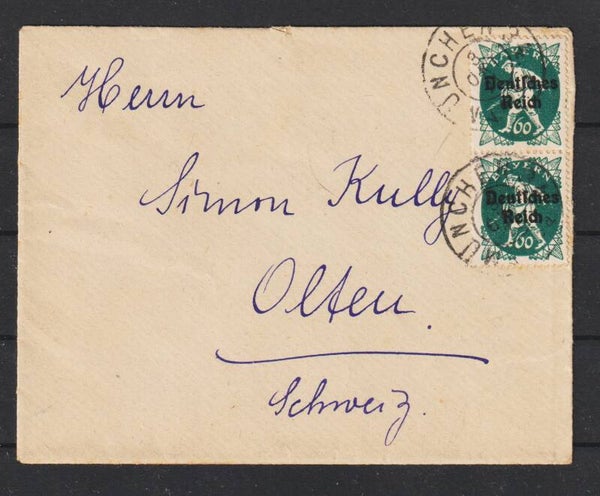 Herrn
Simon Kully
Olten.
Schweiz.
Deutsches
Reich
60
Deutsches
Reich
60
MÜNCHEN